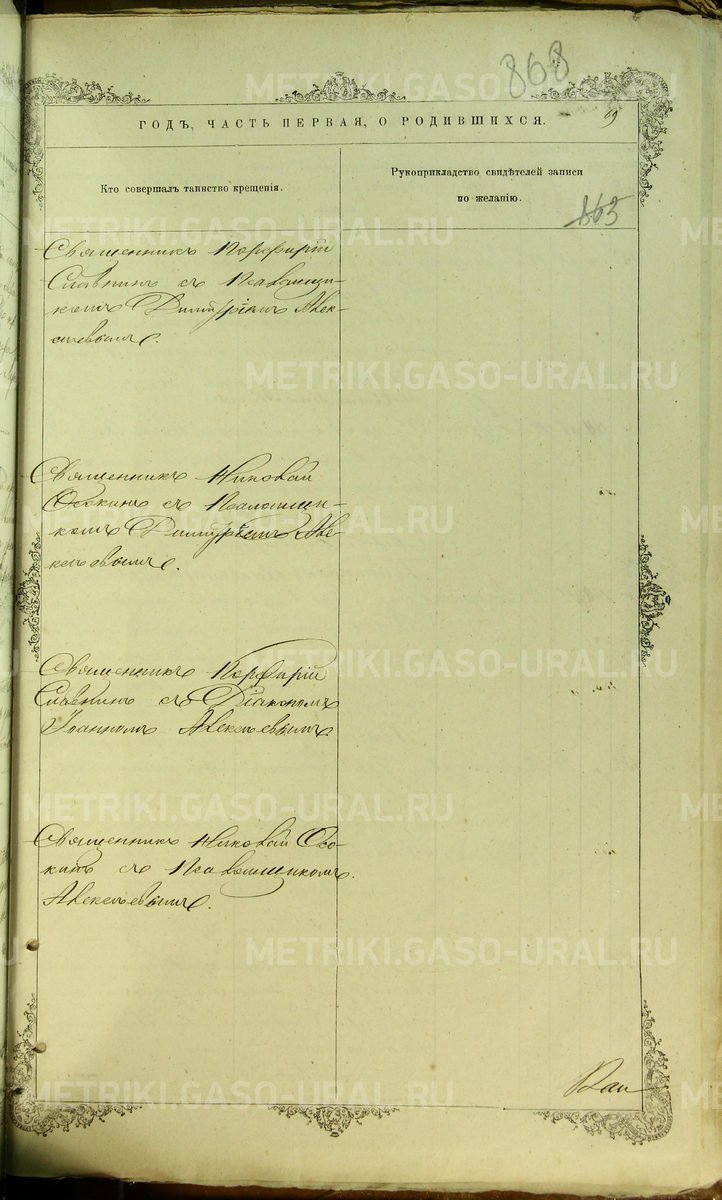 868
69
ГОДЪ, ЧАСТЬ ПЕРВАЯ, О РОДИВШИХСЯ.
Кто совершалъ таинство крещенія.
Рукоприкладство свидѣтелей записи
по желанію.
865
Священникъ Порфирій
Славнинъ съ Псаломщи-
комъ Димитріемъ Алек-
сѣевымъ.
Священникъ Николай
Осокинъ съ Псаломщи-
комъ Димитріемъ Але-
ксѣевымъ.
Священникъ Порфирій
Славнинъ съ Діакономъ
Іоанномъ Алексѣевымъ
Священникъ Николай Осо-
кинъ съ Псаломщикомъ
Алексѣевымъ.
METRIKI.GASO-URAL.RU